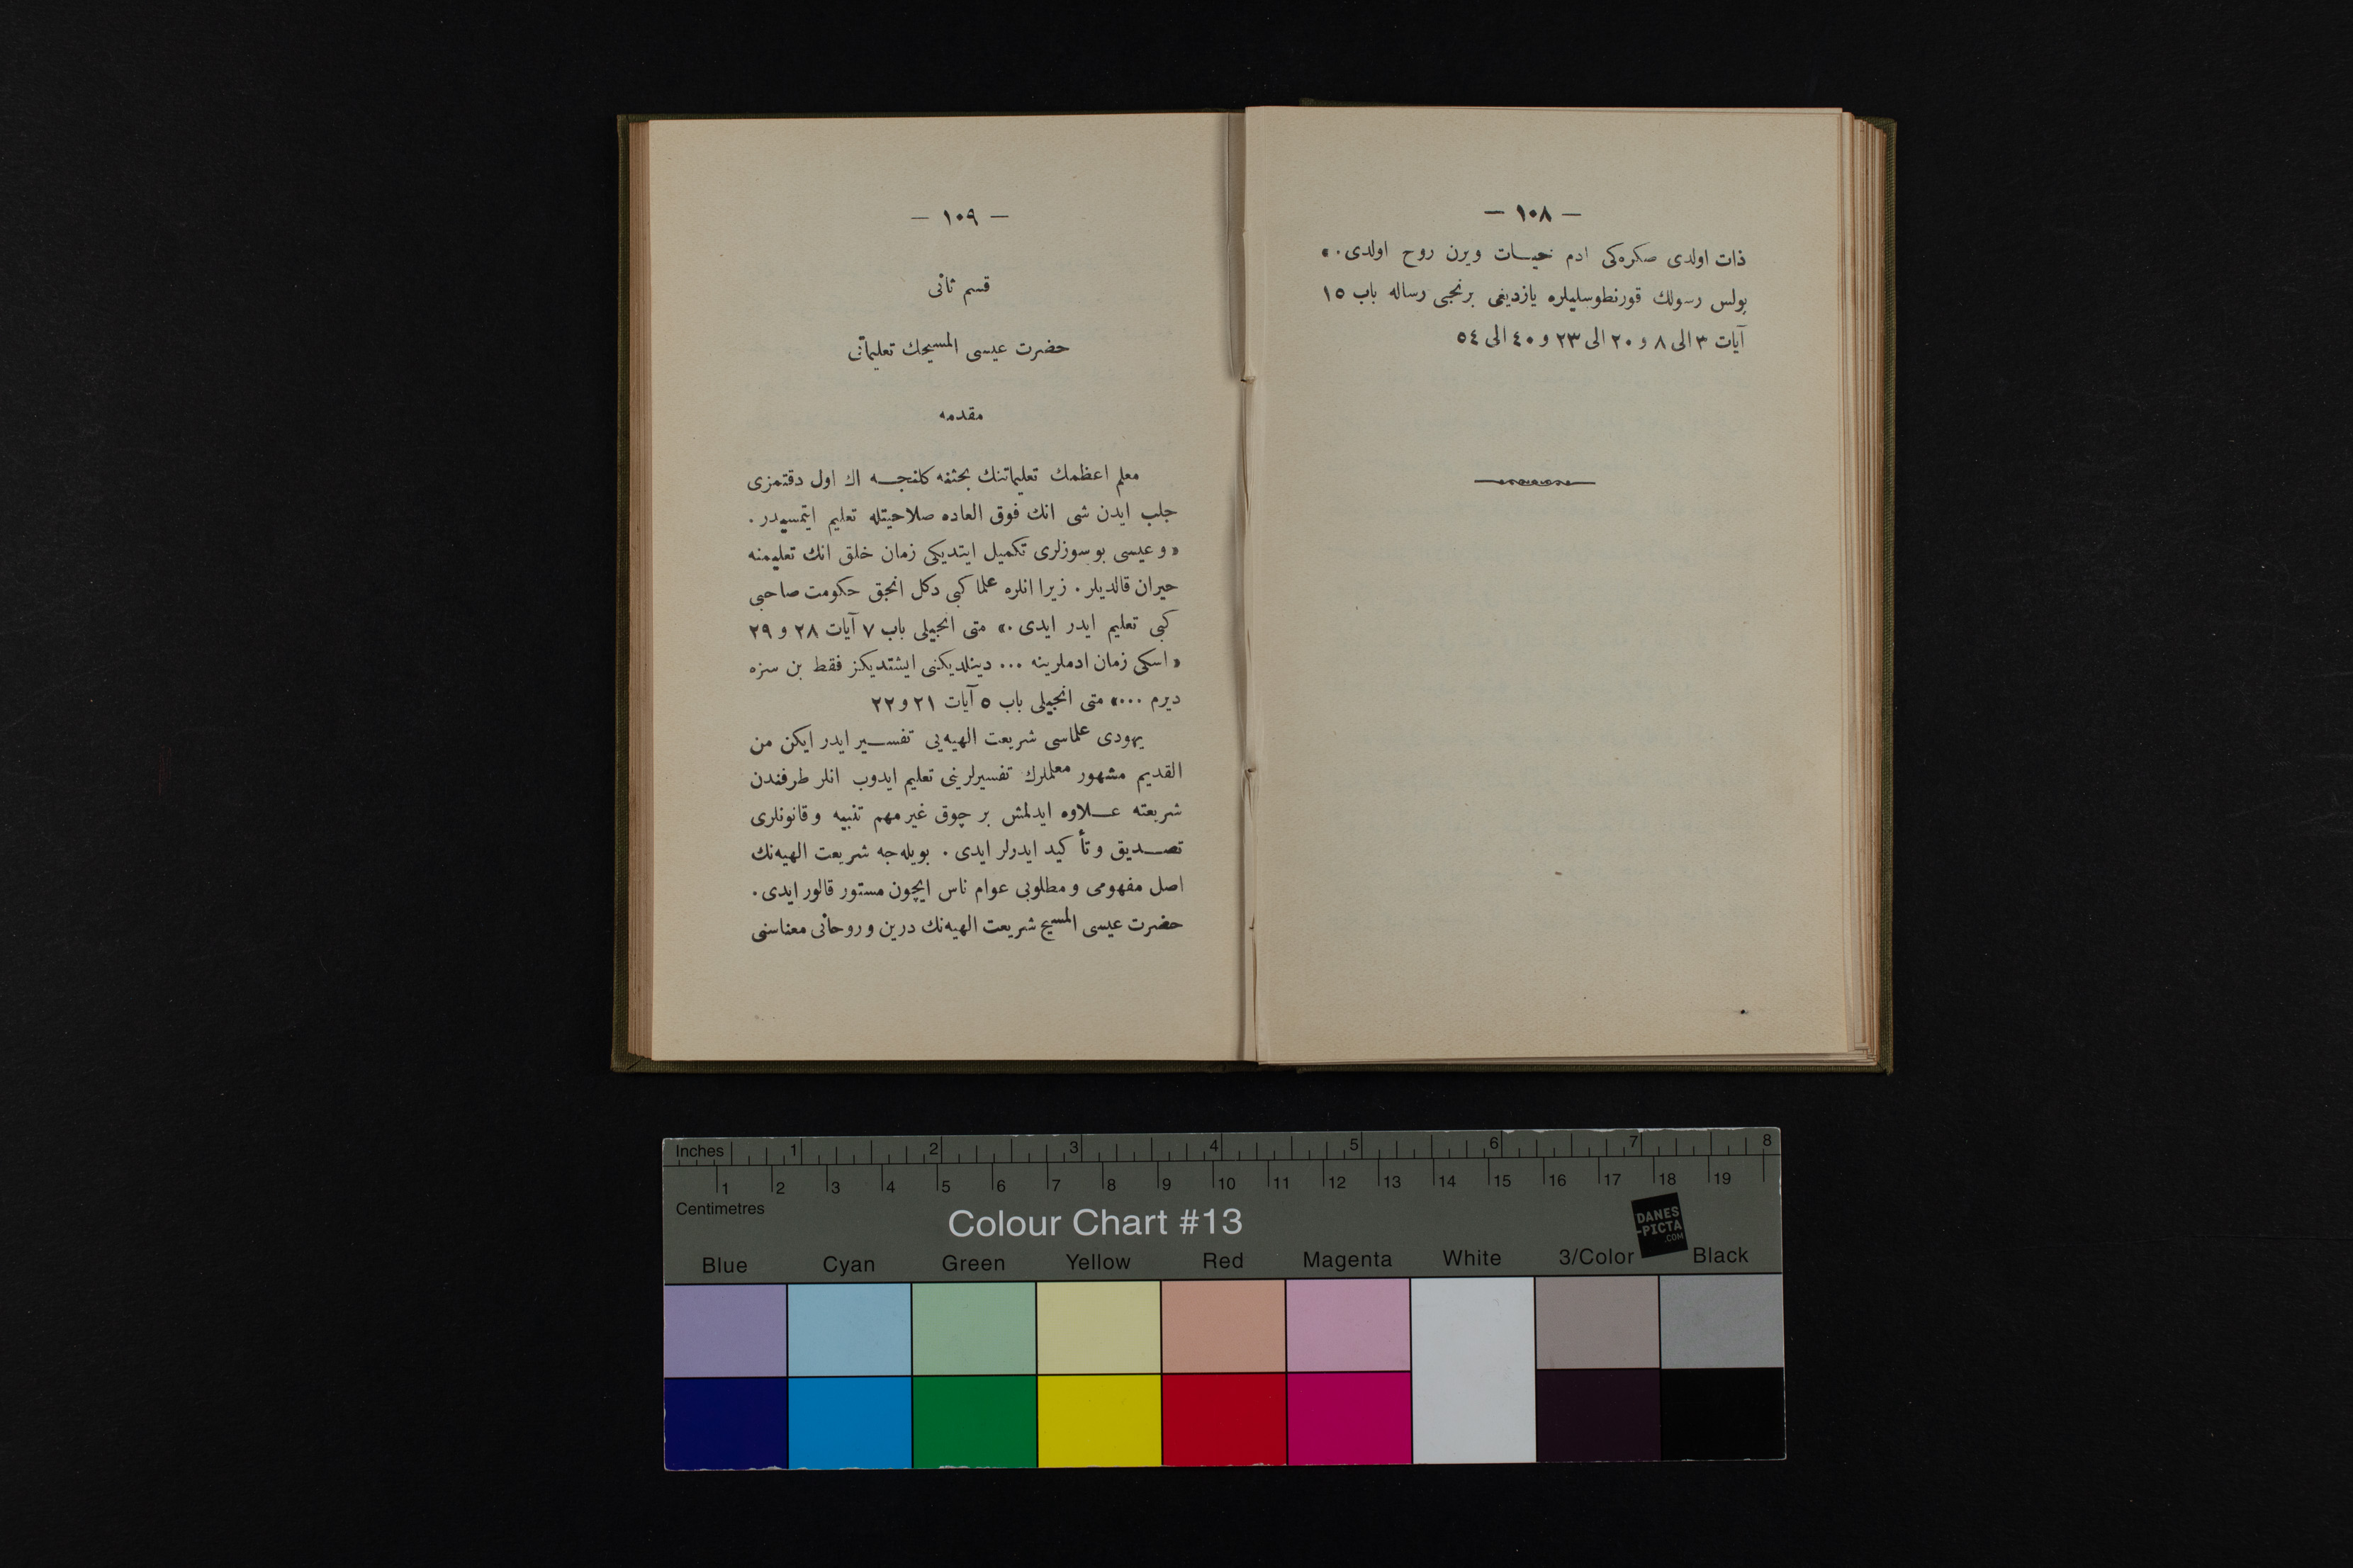 — ١٠٨ —
ذات اولدی صكره‌كی ادم حیـات ویرن روح اولدی . »
پولس رسولك قورنطوسلیلره یازدیغی برنجی رساله باب ١٥
آیات ٣ الی ٨ و ٢٠ الی ٢٣ و ٤٠ الی ٥٤
— ١٠٩ —
قسم ثانی
حضرت عیسی المسیحك تعلیماتی
مقدمه
معلم اعظمك تعلیماتنك بحثنه كلنجـه اك اول دقتمزی
جلب ایدن شی انك فوق العاده صلاحیتله تعلیم ایتمسیدر .
« و عیسی بو سوزلری تكمیل ایتدیكی زمان خلق انك تعلیمنه
حیران قالدیلر . زیرا انلره علما كبی دكل انجق حكومت صاحبی
كبی تعلیم ایدر ایدی . » متی انجیلی باب ٧ آیات ٢٨ و ٢٩
« اسكی زمان ادملرینه ... دینلدیكنی ایشتدیكز فقط بن سزه
دیرم ... » متی انجیلی باب ٥ آیات ٢١ و ٢٢
یهودی علماسی شریعت الهیه‌یی تفسـیر ایدر ایكن من
القدیم مشهور معلملرك تفسیرلرینی تعلیم ایدوب انلر طرفندن
شریعته عـلاوه ایدلمش بر چوق غیر مهم تنبیه و قانونلری
تصـدیق و تأكید ایدرلر ایدی . بویله‌جه شریعت الهیه‌نك
اصل مفهومی و مطلوبی عوام ناس ایچون مستور قالور ایدی .
حضرت عیسی المسیح شریعت الهیه‌نك درین و روحانی معناسنی
Inches 1 2 3 4 5 6 7 8
1 2 3 4 5 6 7 8 9 10 11 12 13 14 15 16 17 18 19
Centimetres
Colour Chart #13
DANES
-PICTA
.COM
Blue Cyan Green Yellow Red Magenta White 3/Color Black